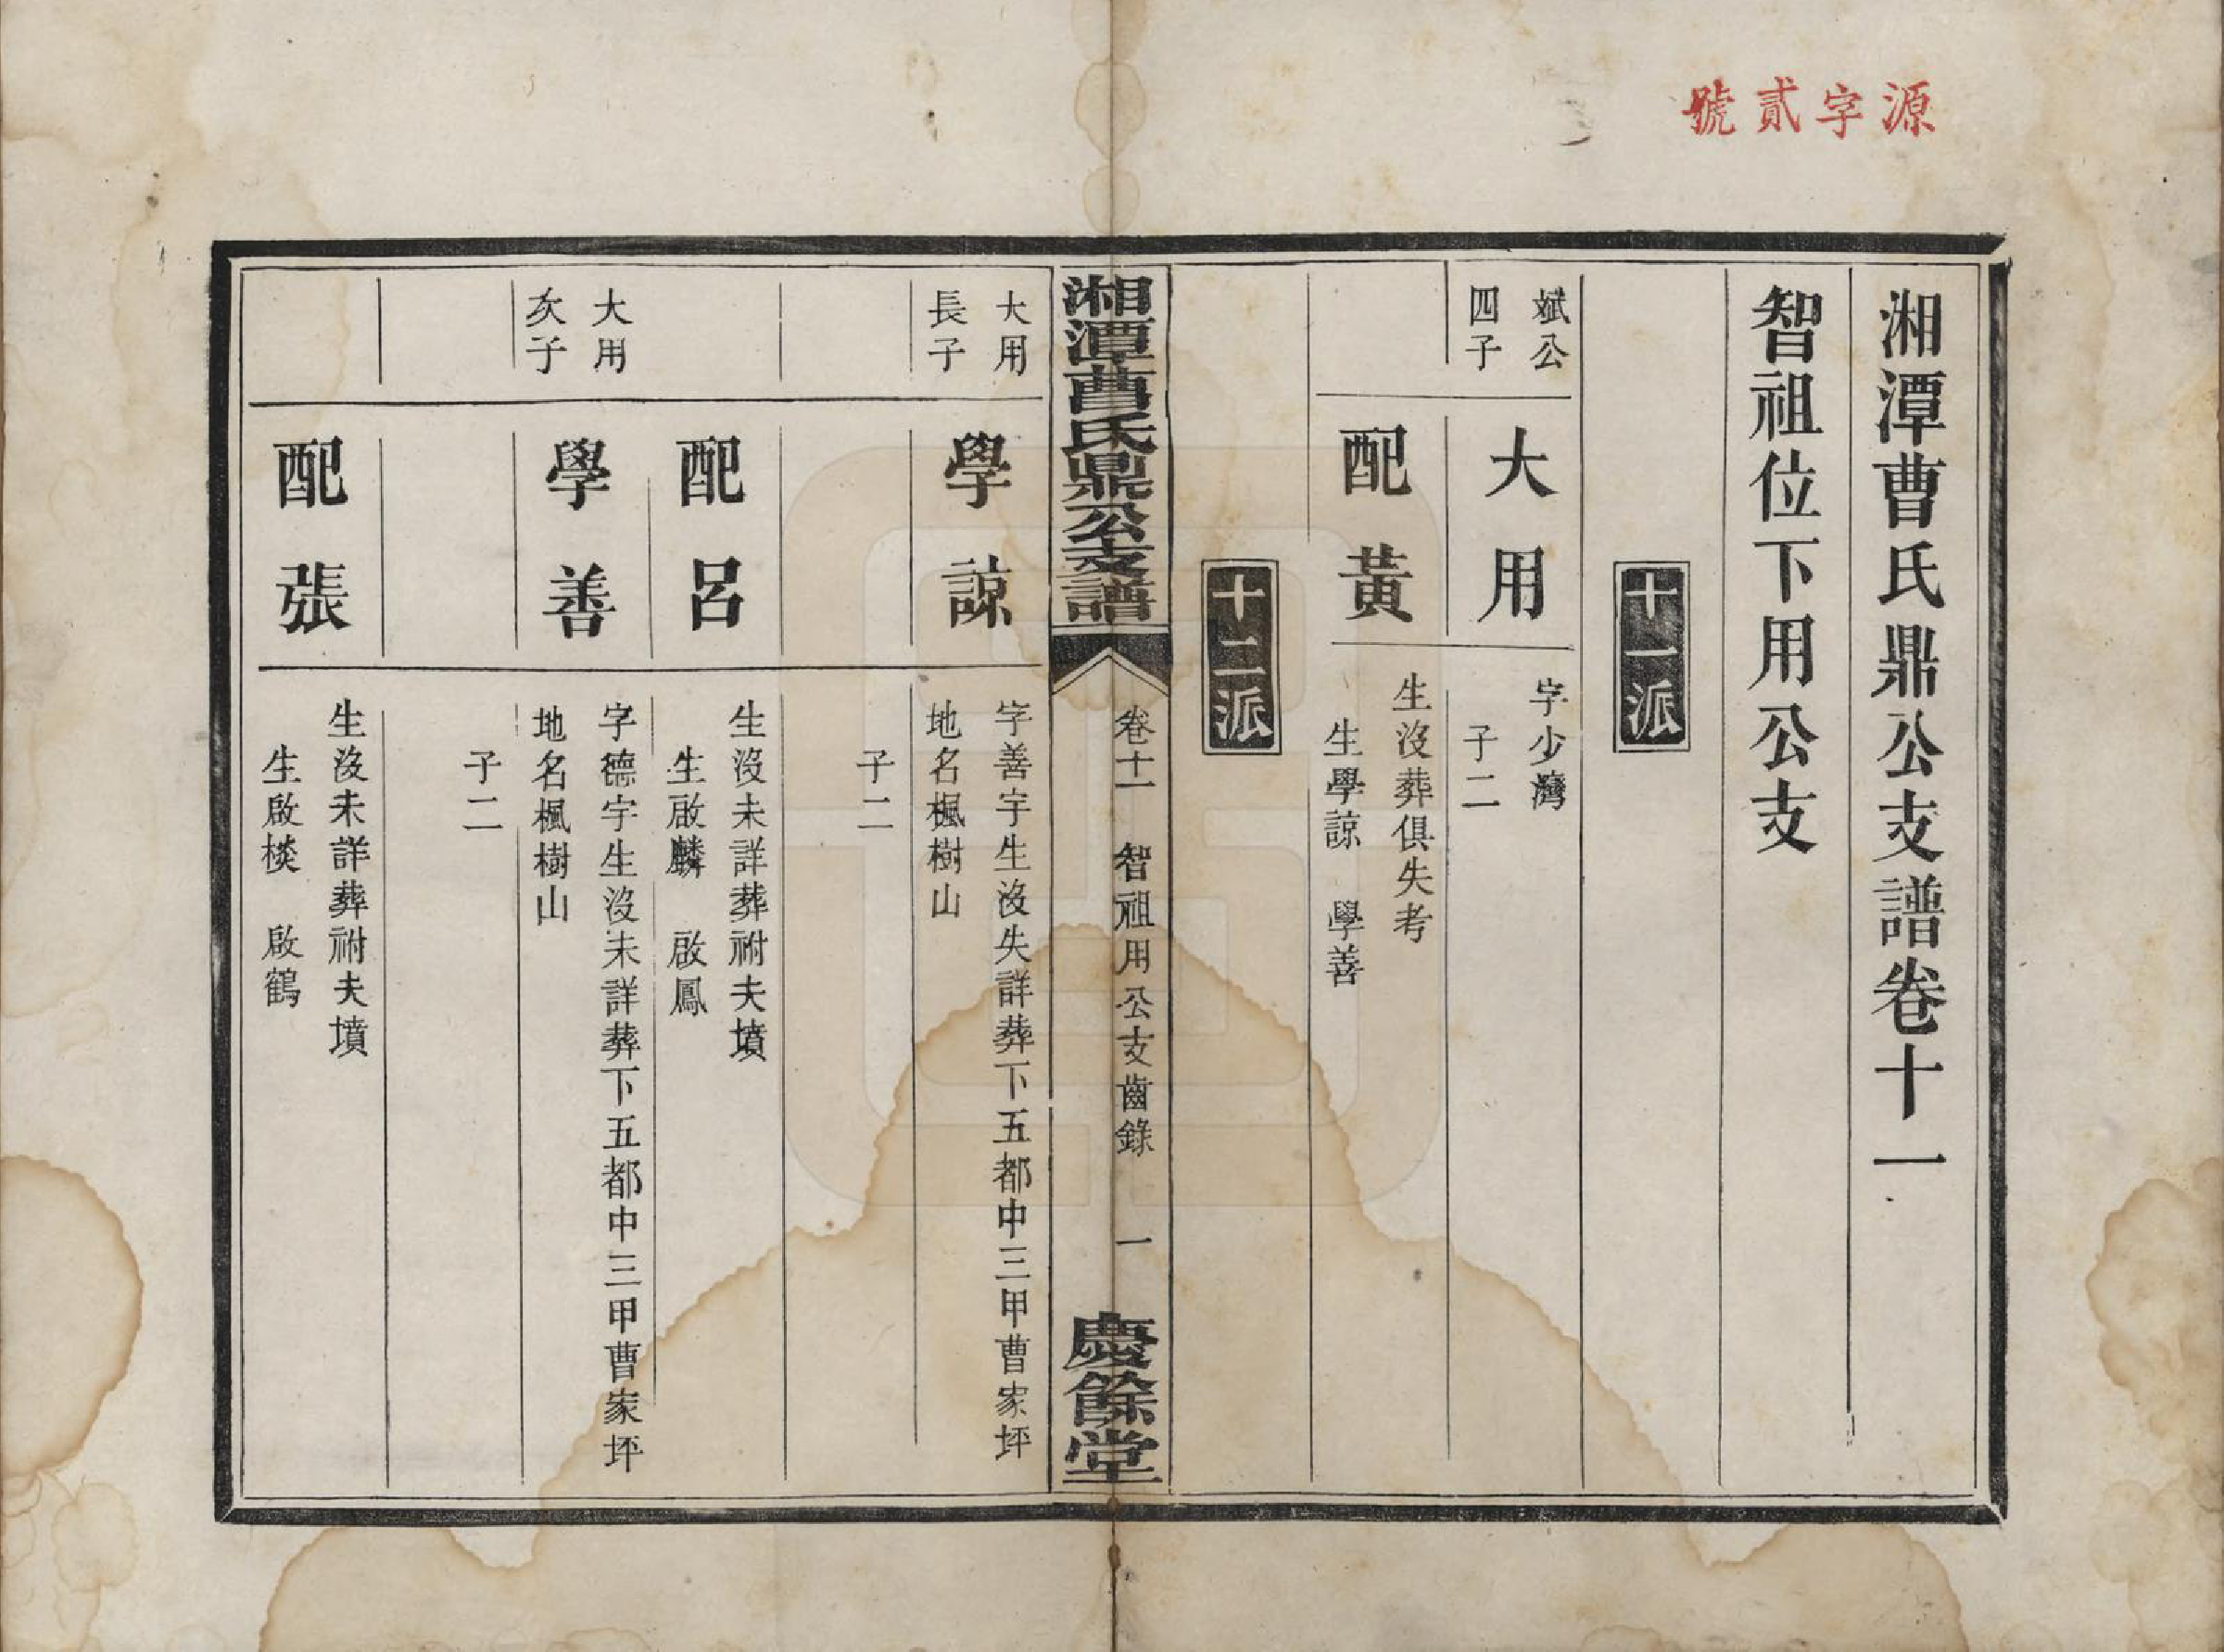 源字貳號
湘潭曹氏鼎公支譜卷十一
智祖位下用公支
十一派
斌公
四子
大用
字少灣
子二
配黃
生沒葬俱失考
生學諒　學善
十二派
湘潭曹氏鼎公支譜
卷十一　智祖用公支齒錄　一
慶餘堂
大用
長子
學諒
字善宇生沒失詳葬下五都中三甲曹家坪
地名楓樹山
子二
配呂
生沒未詳葬祔夫墳
生啟麟　啟鳳
大用
次子
學善
字德宇生沒未詳葬下五都中三甲曹家坪
地名楓樹山
子二
配張
生沒未詳葬祔夫墳
生啟棪　啟鶴